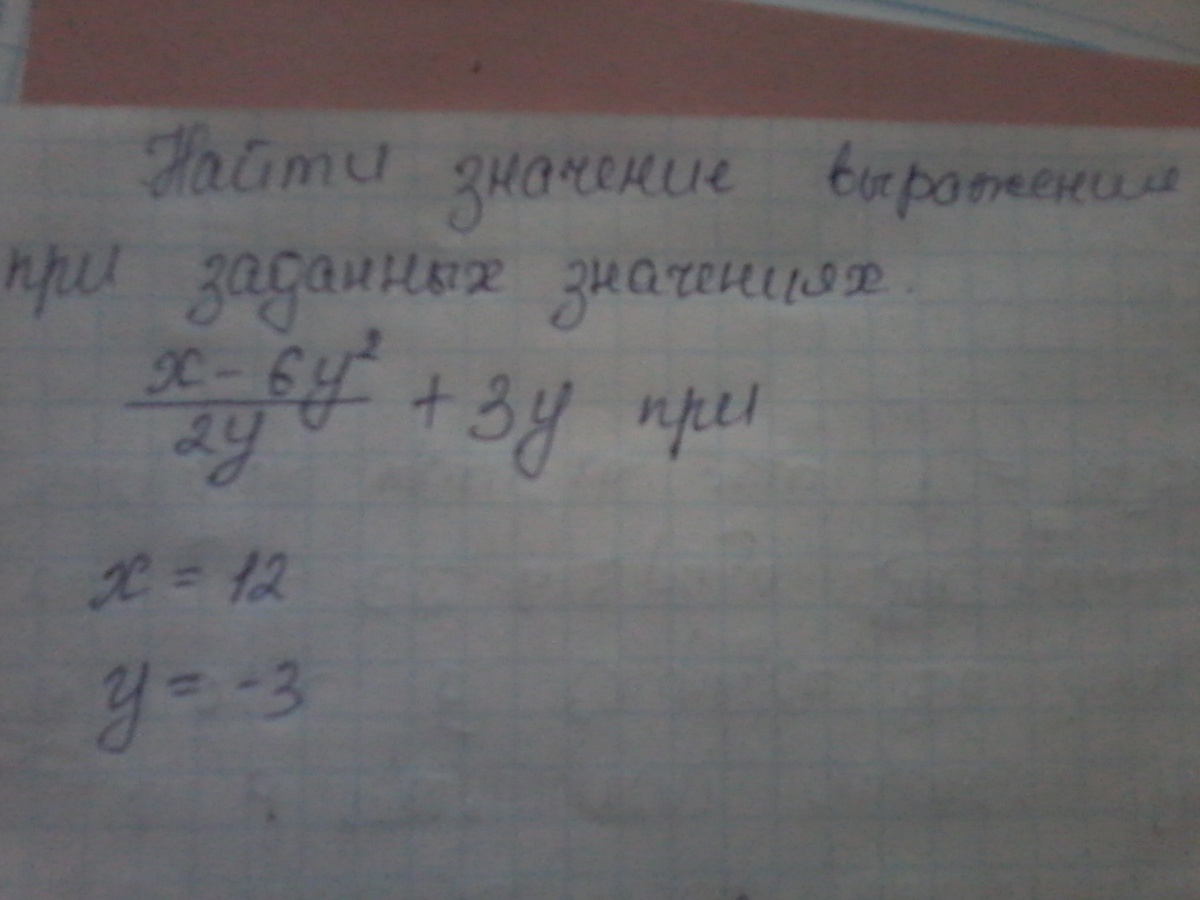 Найти значение выражения
при заданных значениях.
x - 6y² / 2y + 3y при
x = 12
y = -3